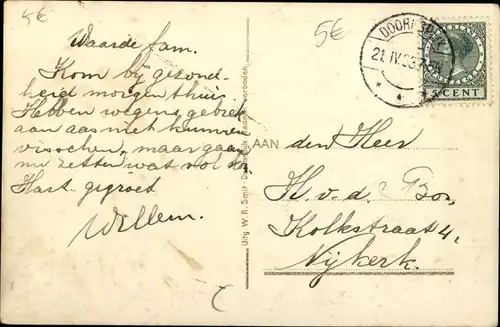 5€
5€
Waarde fam.
Kom bij gezond-
heid morgen thuis
Hebben wegens gebrek
aan aas niet kunnen
visschen, maar gaan
nu zetten wat vol
Hart. gegroet
Willem.
Uitg W. R. Smit
DOORN
21.IV.33.7-8N
5 CENT
AAN den Heer
H. v. d. Bor,
Kolkstraat 4,
Nijkerk.